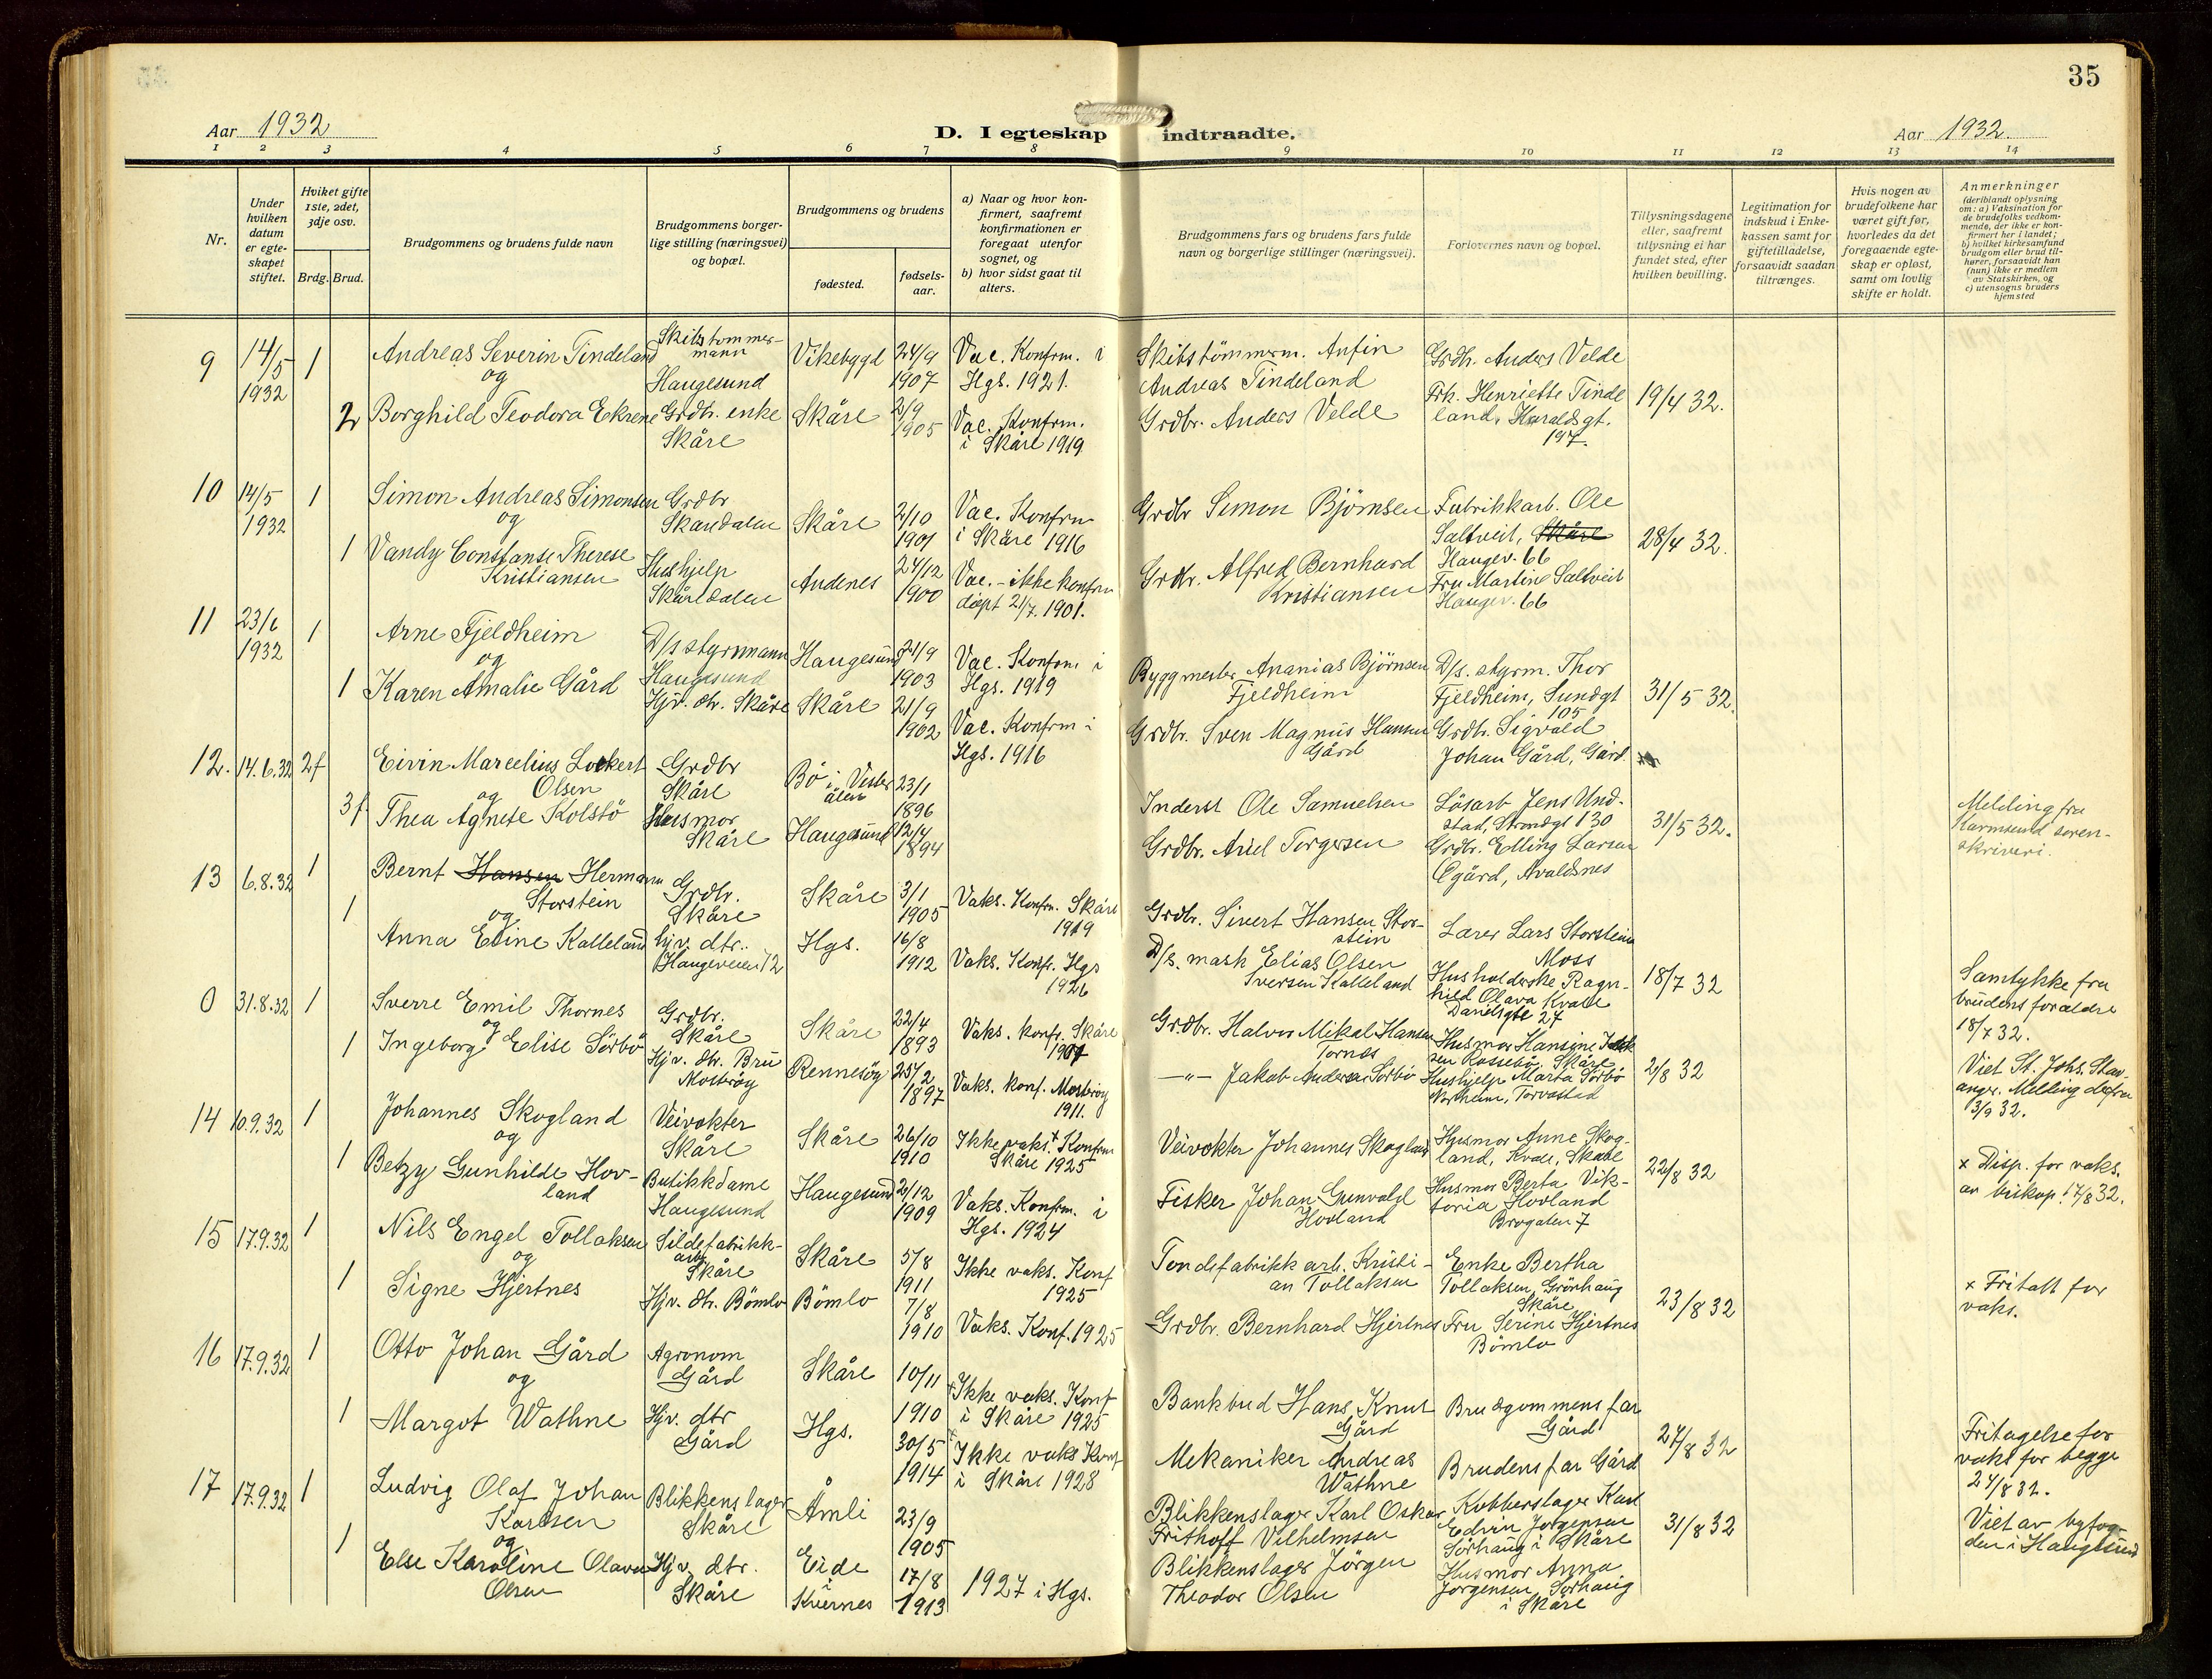 35
Aar 1932
D. I egteskap indtraadte.
Aar 1932.
1 2 3 4 5 6 7 8 9 10 11 12 13 14
Nr.
Under hvilken datum er egte-skapet stiftet.
Hviket gifte 1ste, 2det, 3dje osv.
Brdg. Brud.
Brudgommens og brudens fulde navn
Brudgommens borger-lige stilling (næringsvei) og bopæl.
Brudgommens og brudens
fødested.
fødsels-aar.
a) Naar og hvor kon-firmert, saafremt konfirmationen er foregaat utenfor sognet, og
b) hvor sidst gaat til alters.
Brudgommens fars og brudens fars fulde navn og borgerlige stillinger (næringsvei).
Forlovernes navn og bopæl.
Tillysningsdagene eller, saafremt tillysning ei har fundet sted, efter hvilken bevilling.
Legitimation for indskud i Enke-kassen samt for giftetilladelse, forsaavidt saadan tiltrænges.
Hvis nogen av brudefolkene har været gift før, hvorledes da det foregaaende egte-skap er opløst, samt om lovlig skifte er holdt.
Anmerkninger (deriblandt oplysning om: a) Vaksination for de brudefolks vedkom-mende, der ikke er kon-firmert her i landet; b) hvilket kirkesamfund brudgom eller brud til-hører, forsaavidt han (hun) ikke er medlem av Statskirken, og c) utensogns bruders hjemsted
9 14/5 1932 1 Andreas Severin Tindeland Skibstommer-mann Haugesund Vikebygd 24/9 1907 Vac. Konfrm. i Hgs. 1921. Skibstömmerm. Anfin Andreas Tindeland Grdb. Anders Velde
og
2 Borghild Teodora Ekrene Grdb. enke Skåre Skåre 2/9 1905 Vac. Konfrm. i Skåre 1919 Grdbr. Anders Velde Frk. Henriette Tindeland, Haraldsgt. 197. 19/4 32.
10 14/5 1932 1 Simon Andreas Simonsen Grdbr Skåredalen Skåre 2/10 1901 Vac. Konfrm i Skåre 1916 Grdbr Simon Björnsen Fabrikkarb. Ole Saltveit, Skåre Haugev. 66 28/4 32.
og
1 Vandy Constanse Therese Kristiansen Hushjelp Skåredalen Andenes 24/12 1900 Vac. - ikke konfrm döpt 21/7. 1901. Grdbr. Alfred Bernhard Kristiansen Fru Martine Saltveit Haugev. 66
11 23/6 1932 1 Arne Fjeldheim D/s styrmann Haugesund Haugesund 24/9 1903 Vac. Konfrm i Hgs. 1919 Byggmester Ananias Björnsen Fjeldheim D/s. styrm. Thor Fjeldheim, Sundgt 105 31/5 32.
og
1 Karen Amalie Gård Hjv. dtr. Skåre Skåre 21/9 1902 Vac. Konfrm i Hgs. 1916 Grdbr. Sven Magnus Hansen Gård Grdbr. Sigvald Johan Gård, Gård.
12. 14.6.32 2f Eivin Marcelius Lockert Olsen Grdbr Skåre Bö i Vester ålen 23/1 1896 Inderst Ole Samuelsen Lösarb Jens Und-stad, Strandgt 130 31/5 32. Melding fra Karmsund soren-skriveri.
og
3f Thea Agnete Kolstö Husmor Skåre Haugesund 12/4 1894 Grdbr. Ariel Torgersen Grdbr. Elling Larsen Øgård, Avaldsnes
13 6.8.32 1 Bernt Hansen Hermann Storstein Grdbr. Skåre Skåre 3/1 1905 Vaks. Konfrm. Skåre 1919 Grdbr. Sivert Hansen Stor-stein Lærer Lars Storstein Moss
og
1 Anna Eline Kalleland hjv. dtr. Haugeveien 72 Hgs. 16/8 1912 Vaks. Konfr. Hgs 1926 D/s. mask Elias Olsen Sversen Kalleland Husholderske Ragn-hild Olava Kvale Davidsgt 27 18/7 32 Samtykke fra brudens foreldre 18/7 32.
0 31.8.32 1 Sverre Emil Thornes Grdbr. Skåre Skåre 22/4 1893 Vaks. konfr. Skåre 1907 Grdbr. Halvor Mikal Hansen Tornes Husmor Hansine Isak sen Rossebö, Skåre 2/8 32 Viet St. Johs. Stav-anger. Melding derfra 3/9 32.
og
1 Ingeborg Elise Sörbö Hjv. dtr. Bru Mosteröy Rennesöy 25/2 1897 Vaks. konf. Mosteröy 1911. —"— Jakob Andersen Sörbö Hushjelp Marta Sörbö Norheim, Torvastad
14 10.9.32 1 Johannes Skogland Veivokter Skåre Skåre 26/10 1910 Ikke vaks.x Konfrm Skåre 1925 Veivokter Johannes Skogland Husmor Anne Skog-land, Kvale, Skåre 22/8 32 x Disp. for vaks. av biskop. 17/8 32.
og
1 Betzy Gunhilde Hov-land Butikkdame Haugesund Haugesund 2/12 1909 Vaks. Konfrm. i Hgs. 1924 Fisker Johan Gunvald Hovland Husmor Berta Vik-toria Hovland Brogaten 7
15 17.9.32 1 Nils Engel Tollaksen Sildefabrikk-arb Skåre Skåre 5/8 1911 Ikke vaks. Konf 1925 Tondefabrikkarb. Kristi-an Tollaksen Enke Bertha Tollaksen, Grönhaug Skåre 23/8 32 x Fritatt for vaks.
og
1 Signe Hjertnes Hjv. dtr. Bömlo Bömlo 7/8 1910 Vaks. Konf. 1925 Grdbr. Bernhard Hjertnes Fru Serine Hjertnes Bömlo
16 17.9.32 1 Otto Johan Gård Agronom Gård Skåre 10/11 1910 x Ikke vaks. Konf i Skåre 1925 Bankbud Hans Knut Gård Brudgommens far Gård 27/8 32 Fritagelse for vaks for begge 24/8 32.
og
1 Margot Wathne Hjv. dtr Gård Hgs. 30/5 1914 x Ikke vaks Konf i Skåre 1928 Mekaniker Andreas Wathne Brudens far Gård
17 17.9.32 1 Ludvig Olaf Johan Karlsen Blikkenslager Skåre Åmli 23/9 1905 Blikkenslager Karl Oskar Frithoff Vilhelmsen Kobberslager Karl Edvin Jorgensen Sörhaug i Skåre 31/8 32 Viet av byfog-den i Haugesund
og
1 Else Karoline Olava Olsen Hjv. dtr. Skåre Eide i Kvernes 17/8 1913 1927 i Hgs. Blikkenslager Jörgen Theodor Olsen Husmor Anna Jorgensen, Sorhaug i Skåre